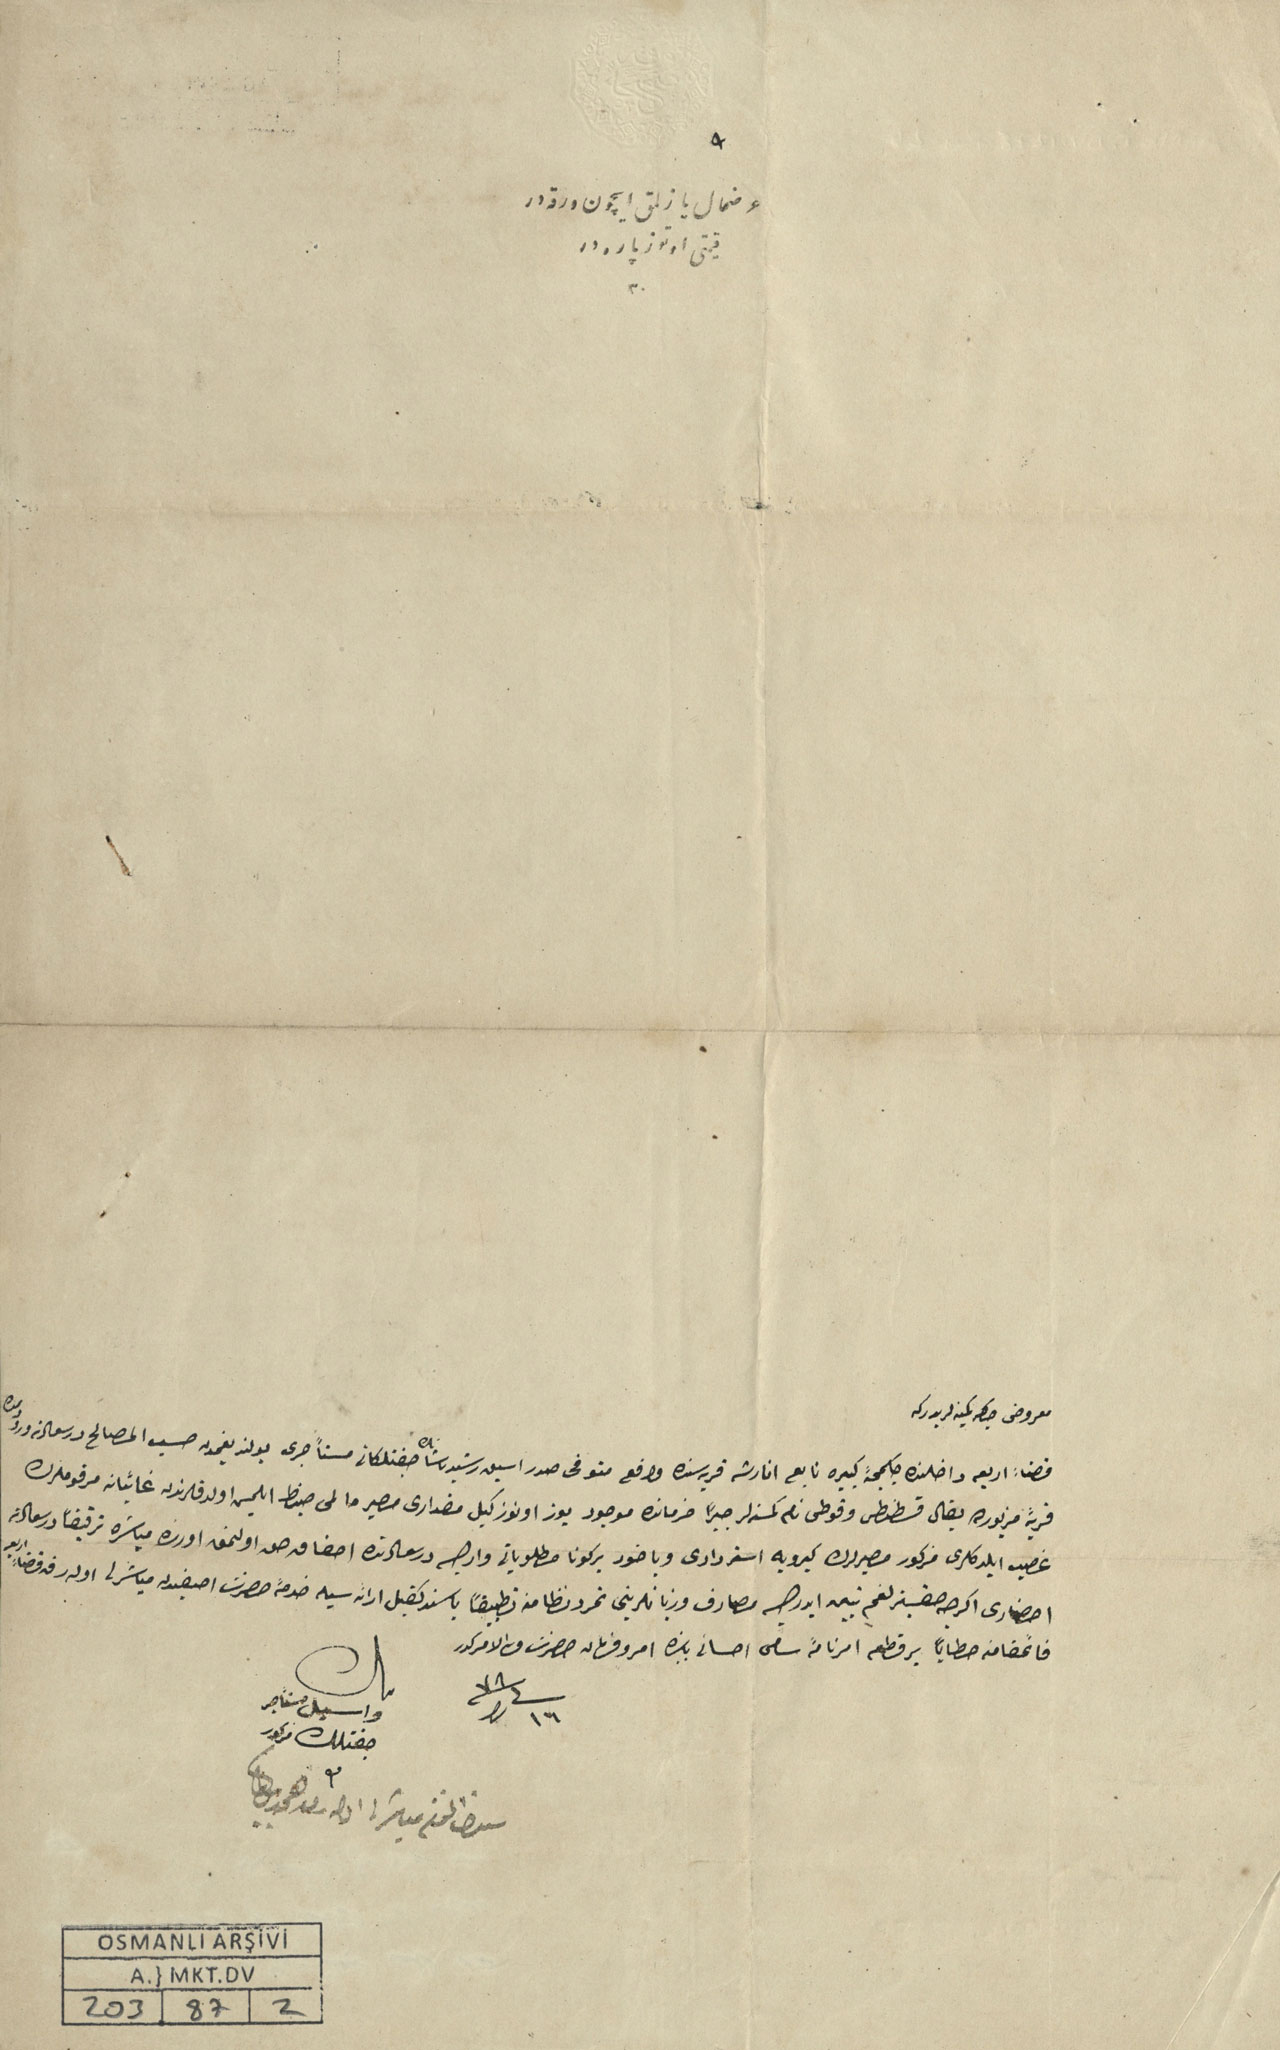 عرضحال یازلمق ایچون ورقه در
قیمتی اوتوز پاره در
۳۰
معروض چاکر کمینه لریدرکه
قضاء اربعه داخلنده چکمجۀ کبیره تابع انارشه قریه سنده واقع متوفی صدر اسبق رشید پاشانك چفتلکاتی مستأجری بولندیغمدن حسب المصالح درسعادته ورودمده
قریۀ مزبوره بقالی قسطنطی و قوطی نام کمسنه لر جبراً خرمانده موجود یوز اوتوز کیل مقداری مصیر مالمی ضبط ایلمش اولدقلرندن غائبانه مرقوملرك
غصب ایلدکلری مذکور مصیرلرك کیرویه استردادی ویاخود برکونا مطلوباتی وارایسه درسعادتده احقاق حق اولنمق اوزره مباشره ترفیقاً درسعادته
احضاری اکرچه حقسزلغم تبین ایدرایسه مصارف و زیانلرینی نمرو نظامنه تطبیقاً یا سند کفیل ارائه سیله خدمۀ حضرت اصفیدن مباشرلی اوله رق قضاء اربعه
قائمقامنه خطاباً برقطعه امرنامۀ سامی احسانی بابنده امر و فرمان حضرت من له الامرکدر
فی ١٦ را سنه ٧٨
بنده
واسیل مستأجر
چفتلك مذکور
OSMANLI ARŞİVİ
A.} MKT.DV
203 87 2